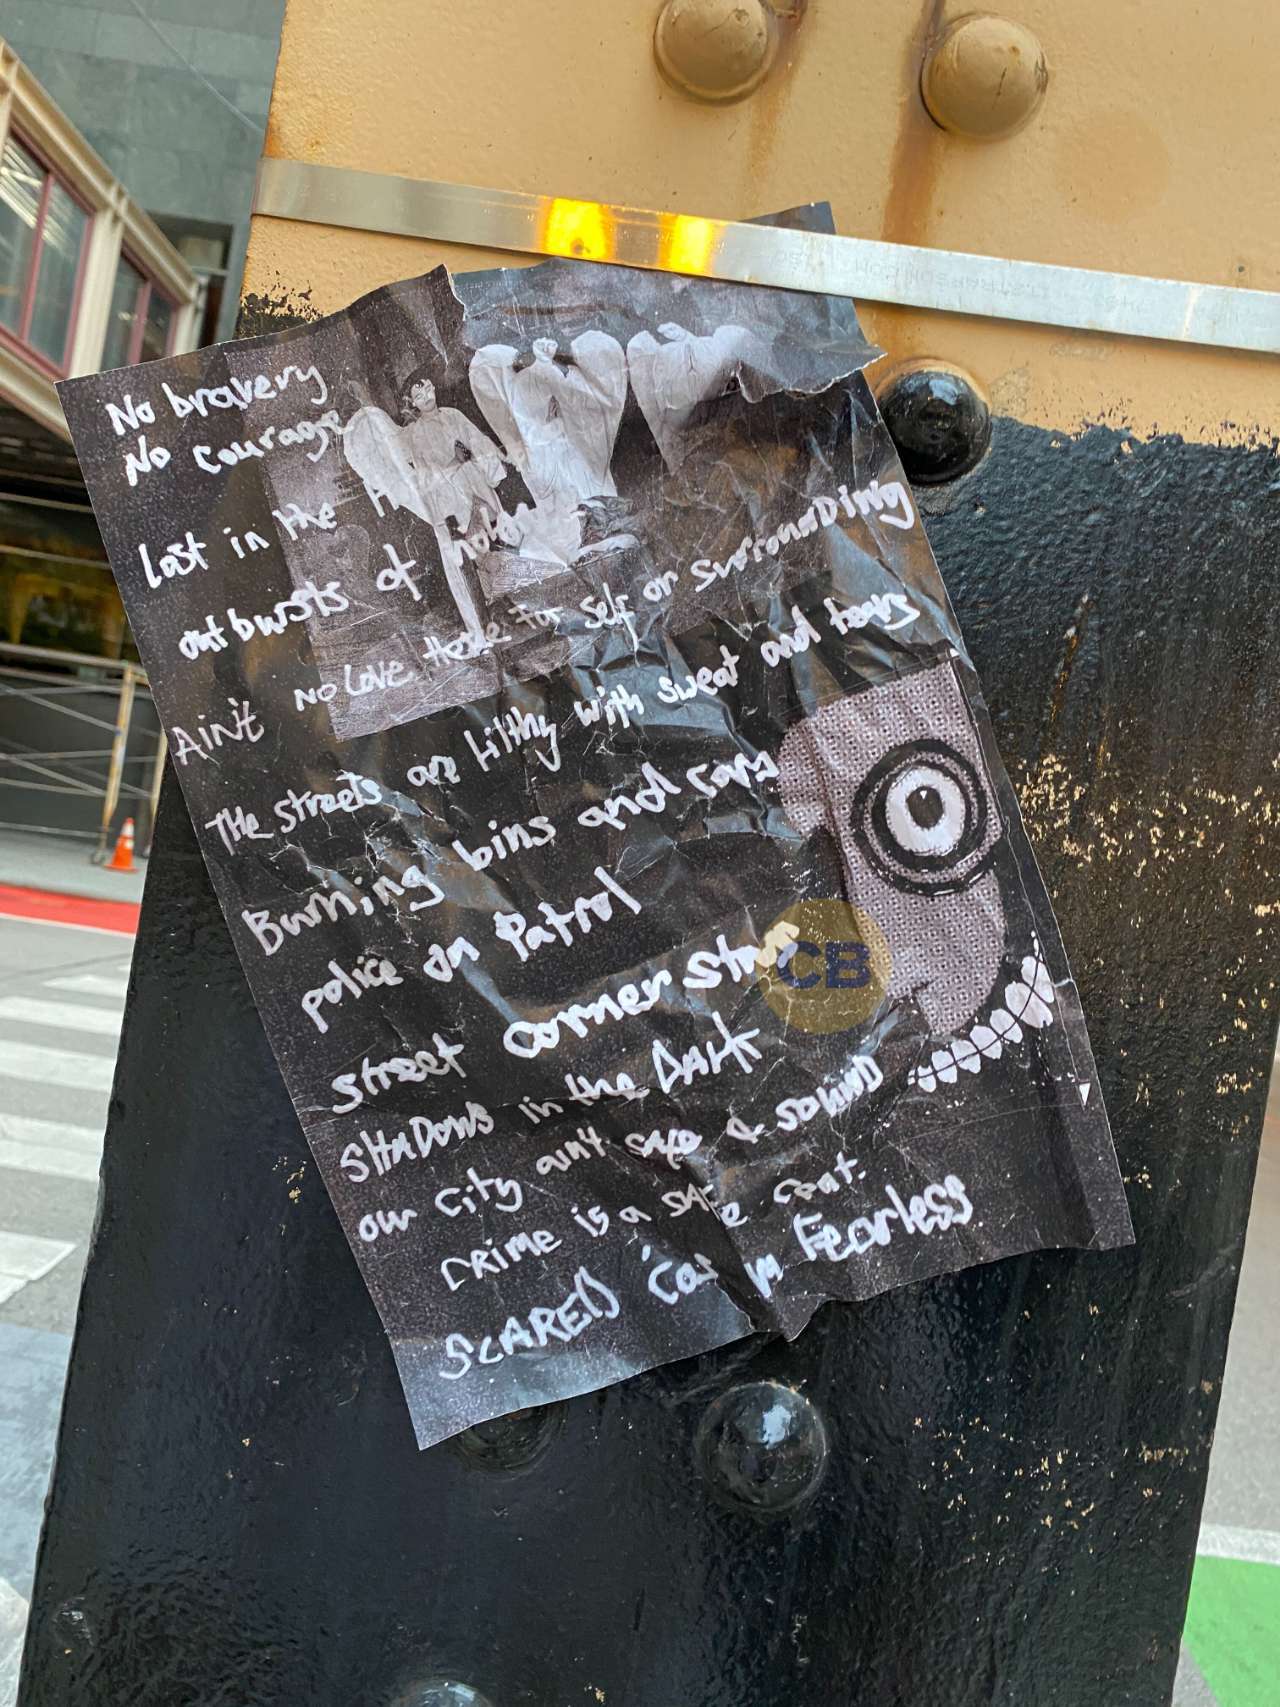 No bravery
No courage
Lost in the
outbursts of
Ain't no Love Here For self or surrounDing
THe streets are filthy with sweat and tears
Burning bins and cars
police on Patrol
street corner
SHaDows in the DARk
our City ain't safe & sound
CRime is a
SCARED Fearless
CB